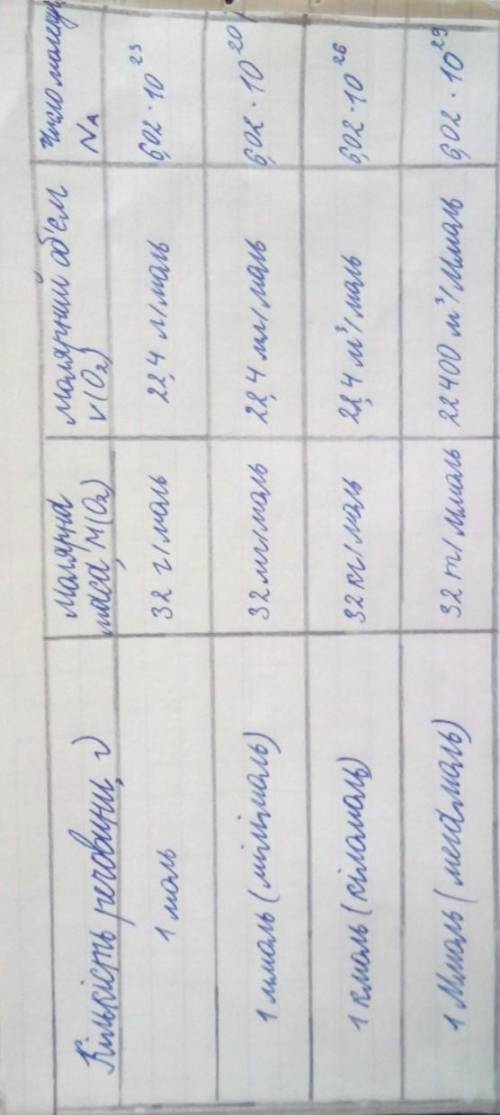 Кількість речовини, ν
Молярна маса, M(O₂)
Молярний об'єм V(O₂)
Число молекул NA
1 моль
32 г/моль
22,4 л/моль
6,02·10²³
1 ммоль (мілімоль)
32 мг/моль
22,4 мл/моль
6,02·10²⁰
1 кмоль (кіломоль)
32 кг/моль
22,4 м³/моль
6,02·10²⁶
1 Ммоль (мегамоль)
32 т/Ммоль
22400 м³/Ммоль
6,02·10²⁹